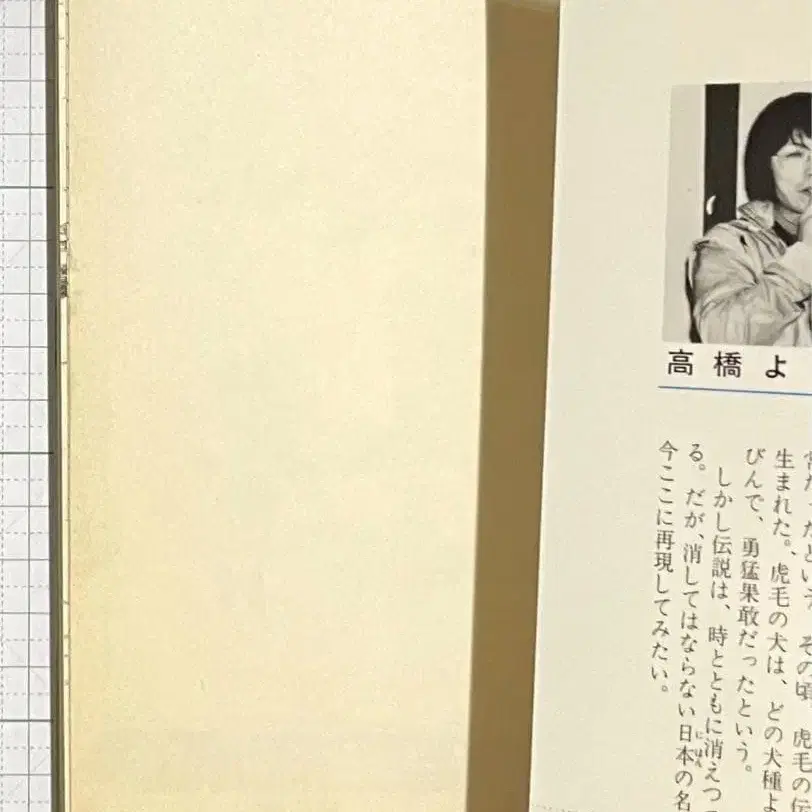 高橋よ
生まれた。虎毛の犬は、どの犬種よ
びんで、勇猛果敢だったという。
しかし伝説は、時とともに消えつ
る。だが、消してはならない日本の名
今ここに再現してみたい。